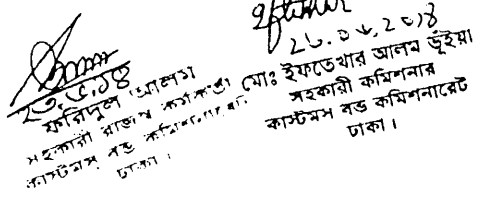 ২৩.৬.১৪
ফরিদুল আলম
সহকারী রাজস্ব কর্মকর্তা
কাস্টমস বন্ড কমিশনারেট
ঢাকা।
২৮.০৬.২০১৪
মোঃ ইফতেখার আলম ভূঁইয়া
সহকারী কমিশনার
কাস্টমস বন্ড কমিশনারেট
ঢাকা।